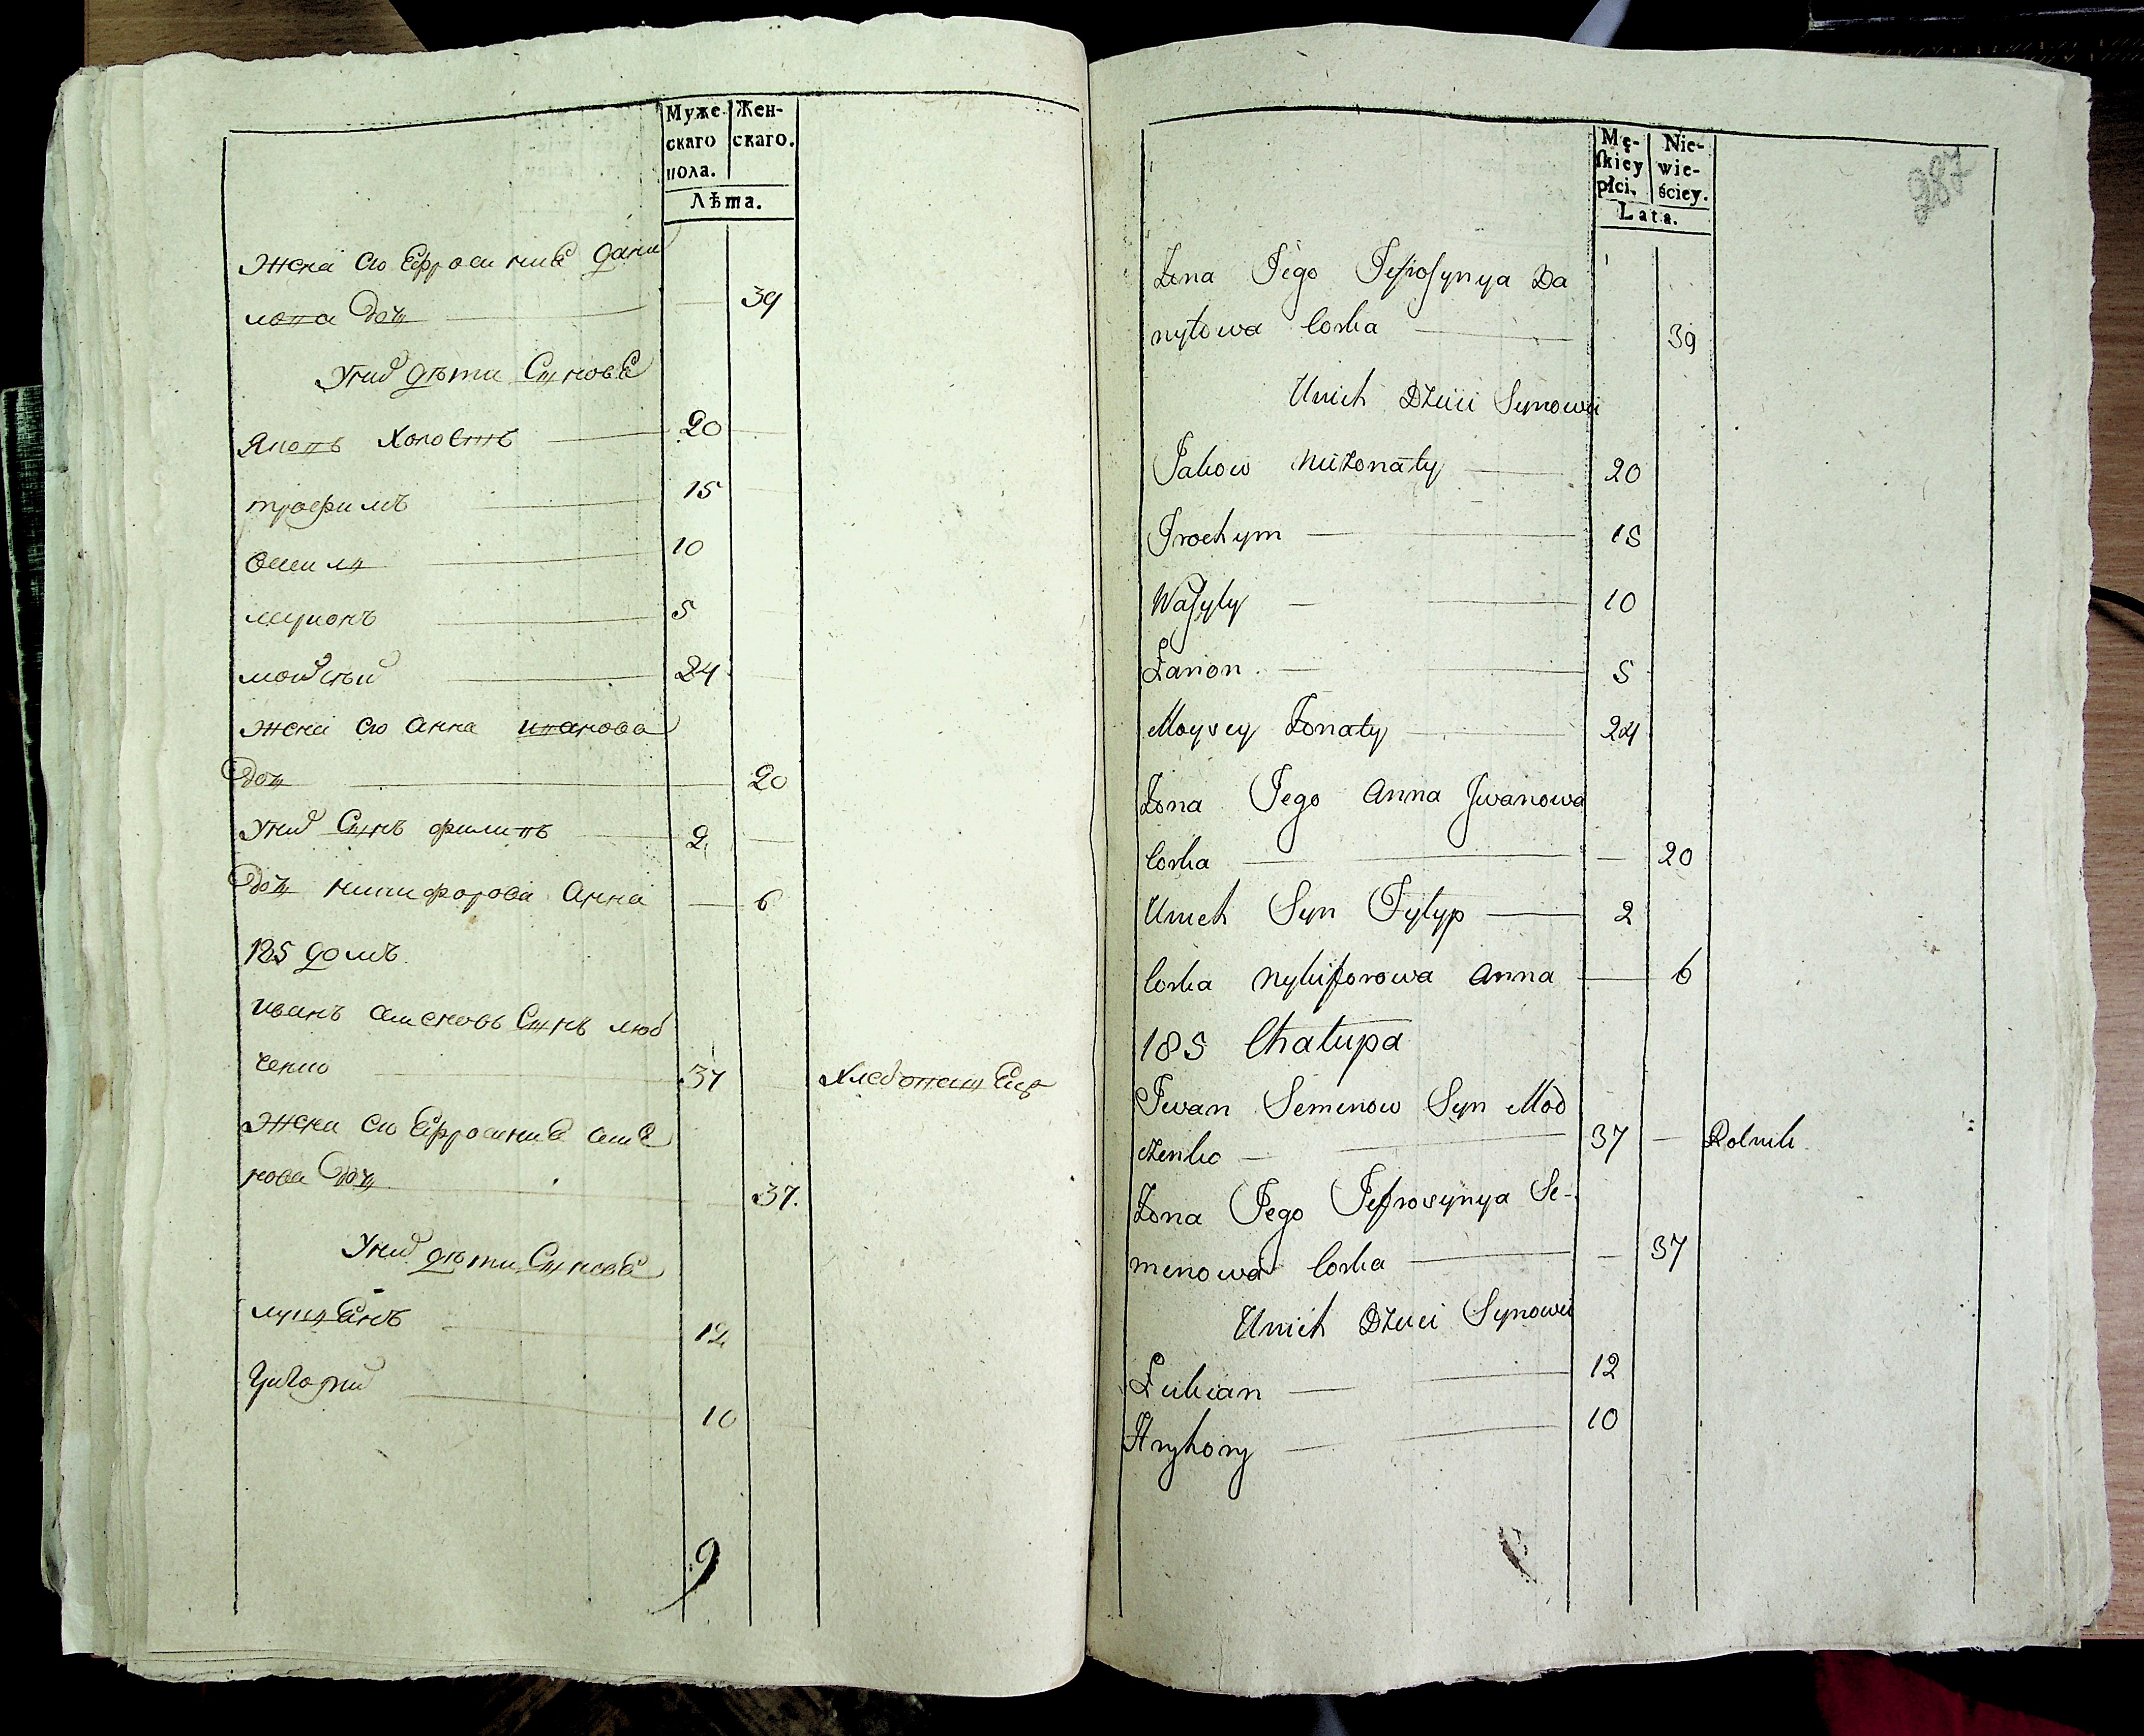 Муже- Жен-
скаго скаго.
пола.
Лѣта.
Жена его Ефросиния Дани
лова дочь 39
У них дѣти Сыновя
Яковъ холостъ 20
трофимъ 15
10
5
мойсѣй 24
жена его анна иванова
дочь 20
У них Сынъ филипъ 2
дочь никифорова Анна 6
185 домъ
иванъ семеновъ Сынъ
ченко 37
Жена его Ефросиния семе
нова дочь 37.
У них дѣти Сыновя
лукиянъ 12
Григорий 10
9
287
Mę- Nie-
ſkiey wie-
płci. ściey.
Lata.
Żona Jego Jefroſynya Da
nyłowa Corka 39
Unich Dzieci Synowie
Jakow Nieżonaty 20
Trochym 15
Waſyly 10
Łarion 5
Moysey Żonaty 24
Żona Jego Anna Jwanowa
Corka 20
Unich Syn Fylyp 2
Corka Nykiforowa Anna 6
185 Chałupa
Iwan Semenow Syn
czenko 37 Rolnik
Żona Jego Jefrosynya Se-
menowa Corka 37
Unich Dzieci Synowie
Łukian 12
Hryhory 10